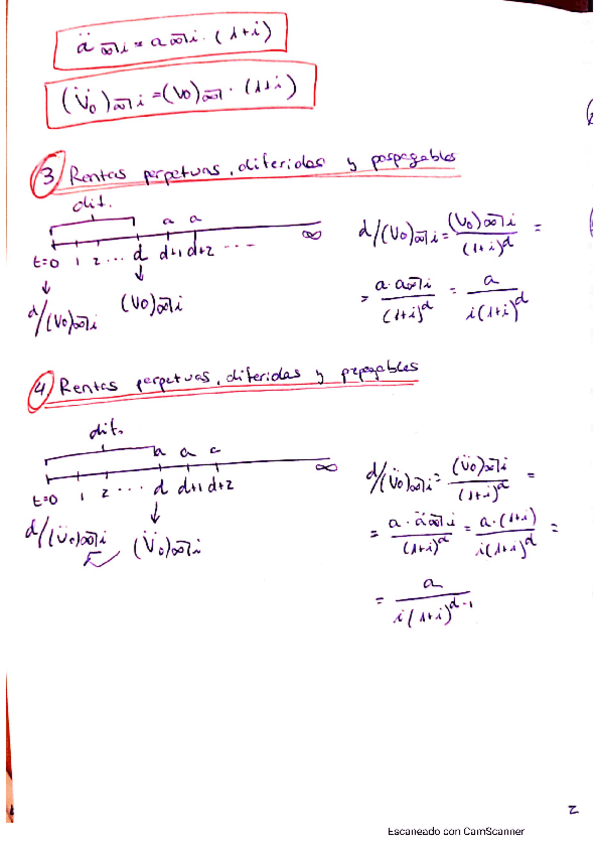 ä ∞̅|i = a ∞̅|i · (1+i)
(V̈₀)∞̅|i = (V₀)∞̅| · (1+i)
3) Rentas perpetuas, diferidas y pospagables
dif.
a a
t=0 1 2 ... d d+1 d+2 ... ∞
d/(V₀)∞̅|i (V₀)∞̅|i
d/(V₀)∞̅|i = (V₀)∞̅|i / (1+i)^d =
= a · a∞̅|i / (1+i)^d = a / i(1+i)^d
4) Rentas perpetuas, diferidas y prepagables
dif.
a a a
t=0 1 2 ... d d+1 d+2 ∞
d/(V̈₀)∞̅|i (V̈₀)∞̅|i
d/(V̈₀)∞̅|i = (V̈₀)∞̅|i / (1+i)^d =
= a · ä∞̅|i / (1+i)^d = a · (1+i) / i(1+i)^d =
= a / i(1+i)^(d-1)
2
Escaneado con CamScanner